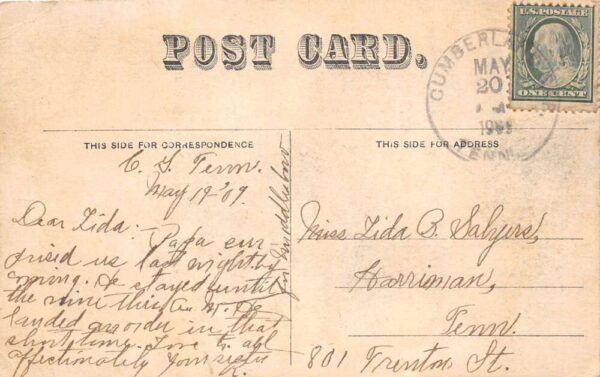 POST CARD.
U.S. POSTAGE
ONE CENT
CUMBERLAND
MAY
20
TENN.
THIS SIDE FOR CORRESPONDENCE
THIS SIDE FOR ADDRESS
C. G. Tenn.
May 19-'09.
Dear Zida:—
Papa sur
prised us last night by
coming. He stayed until
the nine this A. M. He
landed an order in that
short time. Love to all
affectionately your sister
for Middlesboro
Miss Zida B. Salyers,
Harriman,
Tenn.
801 Trenton St.